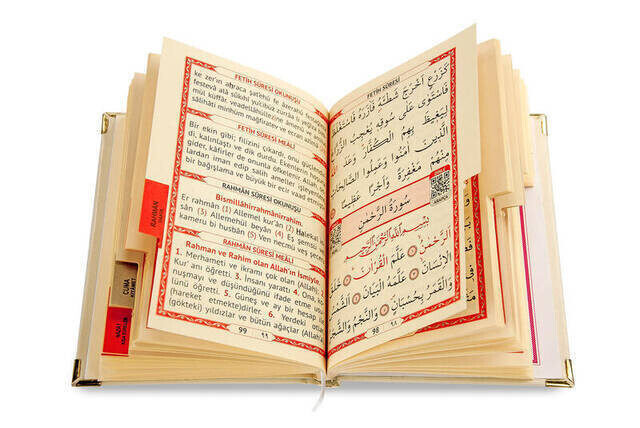 FETİH SÛRESİ OKUNUŞU
ke zer'in ahraca şat'ehû fe âzerahû
festevâ alâ sûkıhî yu'cibuz zurrâa li yeğîza
mül küffâr, veadellâhüllezîne âmenû ve
sâlihâti minhüm mağfiratev ve ecran
FETİH SÛRESİ MEÂLİ
Bir ekin gibi; filizini çıkardı, onu güçlen
di, kalınlaştı ve dik durdu. Ekenlerin
gider, kâfirler de onunla öfkelenir. Allah,
lardan iman edip salih ameller işleyen
bir bağışlama ve büyük bir ecir vaad
RAHMÂN SÛRESİ OKUNUŞU
Bismillâhirrahmânirrahim.
Er rahmân (1) Allemel kur'ân (2) Halekal
sân (3) Allemehül beyân (4) Eş şemsü
kameru bi husbân (5) Ven necmü veş
RAHMÂN SÛRESİ MEÂLİ
Rahman ve Rahim olan Allah'ın İsmiyle
1. Merhameti ve ikramı çok olan (Allah),
Kur'anı öğretti. 3. İnsanı yarattı 4. Ona,
nuşmayı ve düşündüğünü ifade etme
lünü öğretti. 5. Güneş ve ay bir hesap
(hareket etmektedir)ler. 6. Yerdeki
(gökteki) yıldızlar ve bütün ağaçlar (Allah
99 ٩٩
RAHMÂN
CUMA
FETİH SÛRESİ
كَزَرْعٍ اَخْرَجَ شَطْـَٔهُ فَاٰزَرَهُ فَاسْتَغْلَظَ
فَاسْتَوٰى عَلٰى سُوقِهٖ يُعْجِبُ الزُّرَّاعَ
لِيَغٖيظَ بِهِمُ الْكُفَّارَ وَعَدَ اللّٰهُ
الَّذٖينَ اٰمَنُوا وَعَمِلُوا الصَّالِحَاتِ
مِنْهُمْ مَغْفِرَةً وَاَجْرًا عَظٖيمًا
سُورَةُ الرَّحْمٰنِ
بِسْمِ اللّٰهِ الرَّحْمٰنِ الرَّحٖيمِ
اَلرَّحْمٰنُ عَلَّمَ الْقُرْاٰنَ خَلَقَ
الْاِنْسَانَ عَلَّمَهُ الْبَيَانَ اَلشَّمْسُ
وَالْقَمَرُ بِحُسْبَانٍ وَالنَّجْمُ وَالشَّجَرُ
98 ٩٨